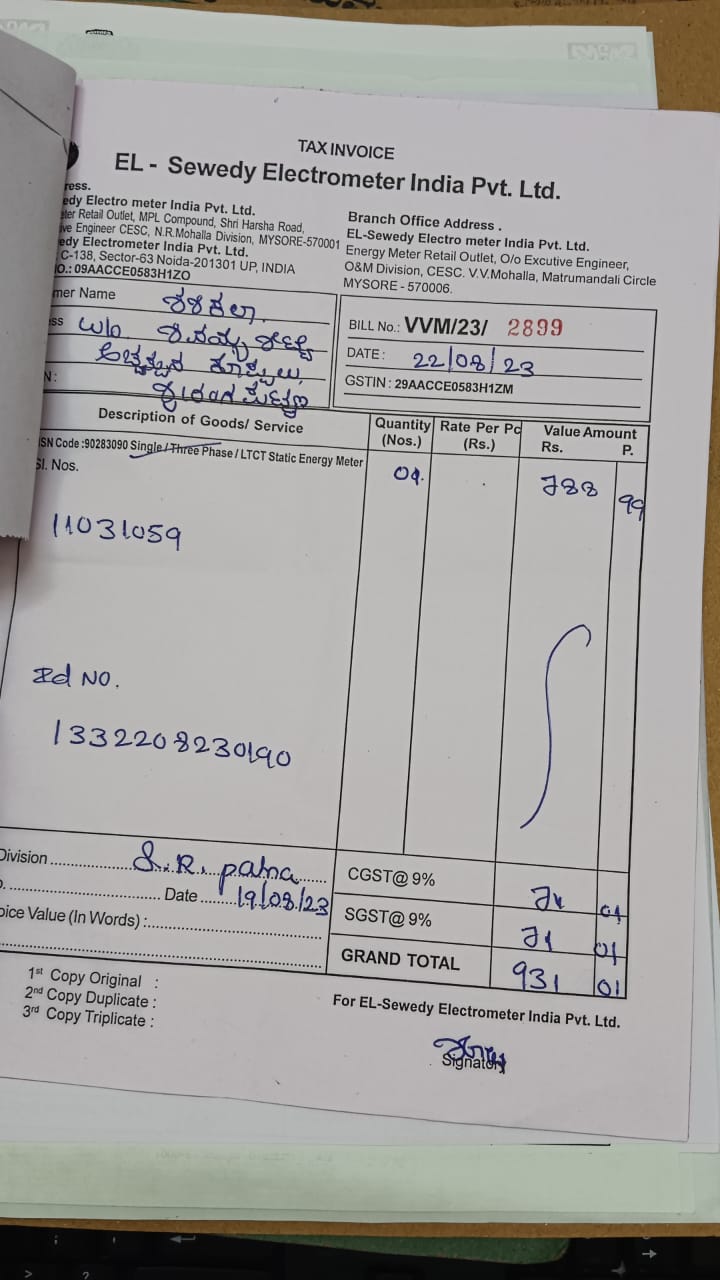 TAX INVOICE
EL - Sewedy Electrometer India Pvt. Ltd.
ress.
edy Electro meter India Pvt. Ltd.
ter Retail Outlet, MPL Compound, Shri Harsha Road,
ive Engineer CESC, N.R.Mohalla Division, MYSORE-570001
edy Electrometer India Pvt. Ltd.
C-138, Sector-63 Noida-201301 UP, INDIA
O.: 09AACCE0583H1ZO
Branch Office Address .
EL-Sewedy Electro meter India Pvt. Ltd.
Energy Meter Retail Outlet, O/o Excutive Engineer,
O&M Division, CESC. V.V.Mohalla, Matrumandali Circle
MYSORE - 570006.
mer Name ಶಶಿಕಲಾ
ess W/o
N:
BILL No.: VVM/23/ 2899
DATE: 22/08/23
GSTIN : 29AACCE0583H1ZM
Description of Goods/ Service Quantity (Nos.) Rate Per Pc (Rs.) Value Amount Rs. P.
SN Code :90283090 Single / Three Phase / LTCT Static Energy Meter
Sl. Nos. 01. 788 99
11031059
Id NO.
1332208230190
Division S.R. patna
Date 19/08/23
oice Value (In Words) :
CGST@ 9% 71 01
SGST@ 9% 71 01
GRAND TOTAL 931 01
1st Copy Original :
2nd Copy Duplicate :
3rd Copy Triplicate :
For EL-Sewedy Electrometer India Pvt. Ltd.
Signatory